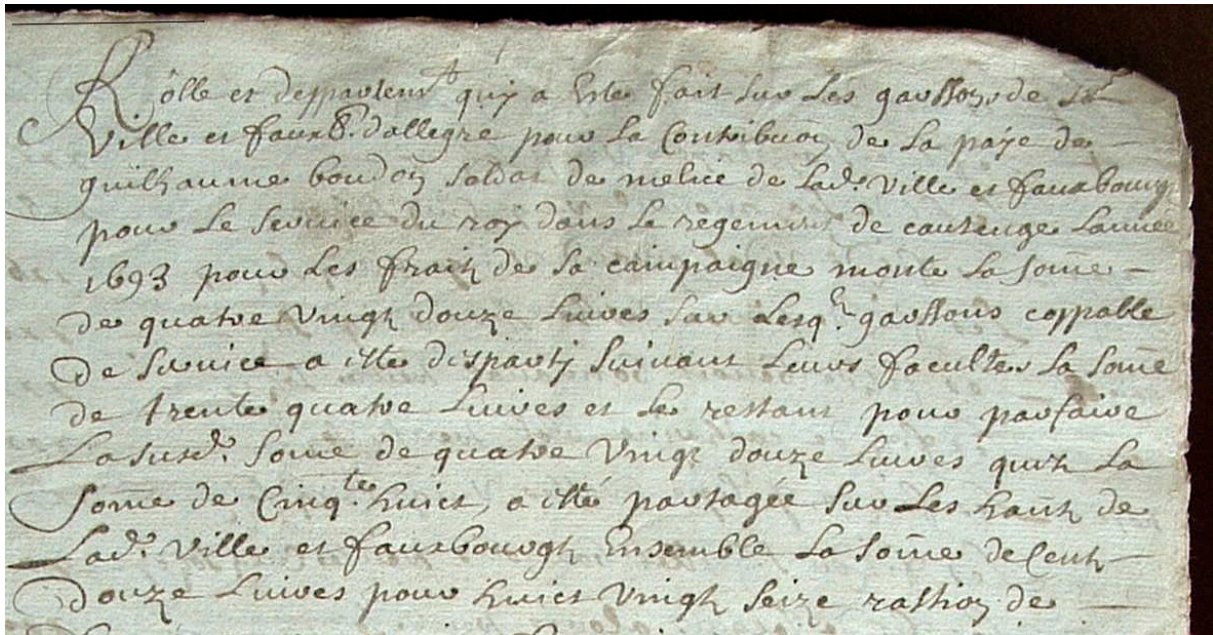 Rolle et deppartemt quy a Este fait sur Les garssons de la
Ville et fauxb. dallegre pour La Contribuon de La paye de
guilhaume boudon soldat de melice de Lad. Ville et fauxbourgs
pour Le service du roy dans le regemint de cauzenge Lannee
1693 pour Les fraix de Sa campaigne monte La some
de quatre Vingt douze Livres sur Lesq. garssons cappable
de service a este disparty suivant Leurs facultes La some
de trente quatre Livres et Le restant pour parfaire
La susd. some de quatre Vingt douze Livres quiz La
some de Cinqte huict, a este partagée sur Les hants de
Lad. Ville et fauxbourghs Ensemble La some de Cent
douze Livres pour huict Vingt seize ration de